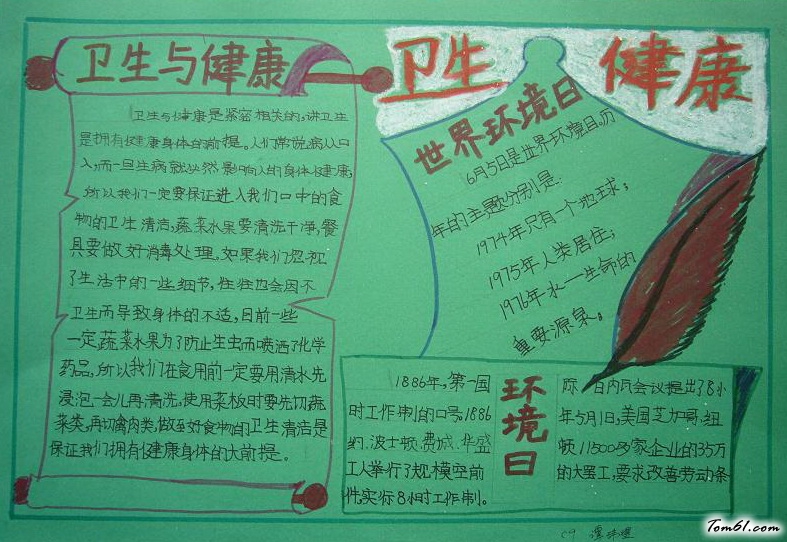 卫生与健康
卫生与健康是紧密相关的,讲卫生
是拥有健康身体的前提。人们常说病从口
入,而一旦生病就必然影响人的身体健康,
所以我们一定要保证进入我们口中的食
物的卫生清洁,蔬菜水果要清洗干净,餐
具要做好消毒处理,如果我们忽视
了生活中的一些细节,往往也会因不
卫生而导致身体的不适,目前一些
一定,蔬菜水果为了防止生虫而喷洒了化学
药品,所以我们在食用前一定要用清水先
浸泡一会儿再清洗,使用菜板时要先切蔬
菜类,再切禽肉类,做到好食物的卫生清洁是
保证我们拥有健康身体的大前提。
卫生 健康
世界环境日
6月5日是世界环境日,历
年的主题分别是:
1974年只有一个地球;
1975年人类居住;
1976年水—生命的
重要源泉。
环境日
1886年,第一国
时工作制的口号。1886
约、波士顿、费城、华盛
工人举行了规模空前
件,实行8小时工作制。
际 日内瓦会议提出了8小
年5月1日,美国芝加哥、纽
顿11500多家企业的35万
的大罢工,要求改善劳动条
Tom61.com